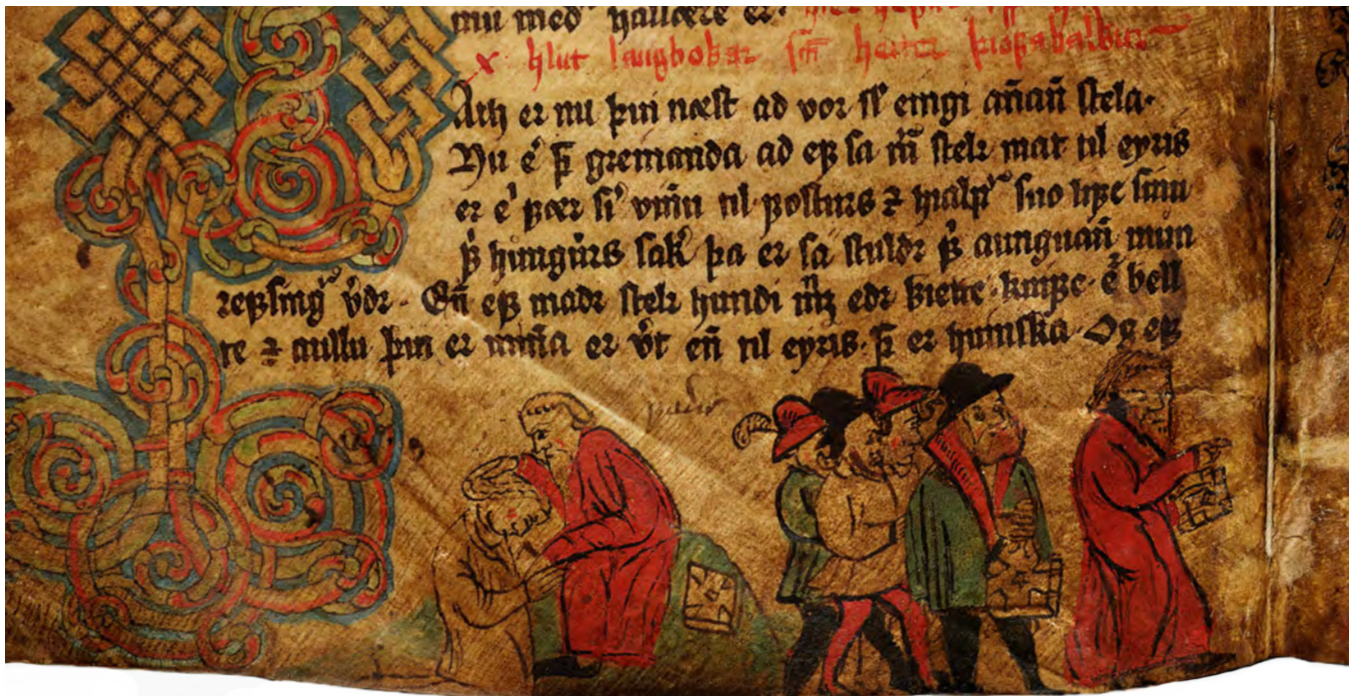 nu med hallære er.
x. hlut laugbokar sm̄ heiter þiofabalkur
Ath er nu þui næst ad vor sł eingi añañ stela.
Nu e᷒ þ̄ greinanda ad ef sa m̄ stelr mat til eyris
er e᷒ fær s᷒ vinnu til fosturs ⁊ hialpr suo lífe sinu
f᷒ hungurs sak᷒ þa er sa stuldr f᷒ aunguañ mun
refsing᷒ v᷒dr. Eñ ef madr stelr hundi m̄ edr kietti knife e᷒ bell
te ⁊ aullu þui er miña er v᷒t eñ til eyris. þ̄ er huinska. Og ef